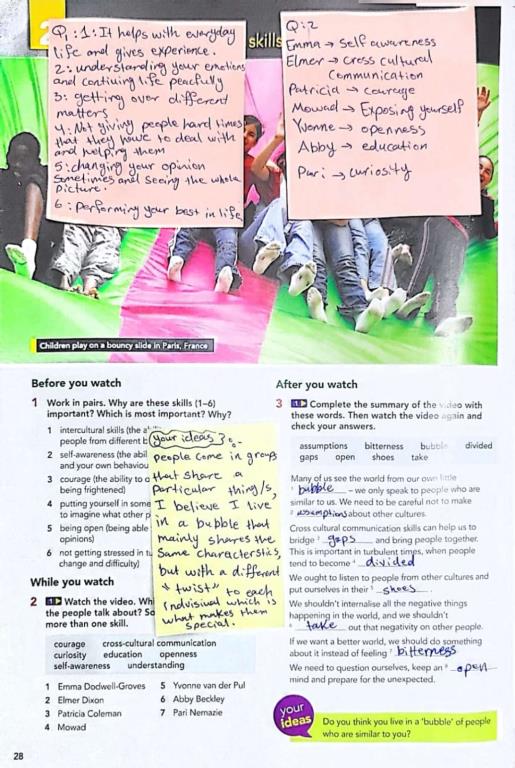 2
skills
Q1:1: It helps with everyday
life and gives experience.
2: understanding your emotions
and contiuing life peacfully
3: getting over different
matters
4: Not giving people hard times
that they have to deal with
and helping them
5: changing your opinion
somtimes and seeing the whole
picture.
6: performing your best in life
Q:2
Emma → Self awareness
Elmer → cross cultural
communication
Patricia → courage
Mowad → Exposing yourself
Yvonne → openness
Abby → education
Pari → curiosity
Children play on a bouncy slide in Paris, France
Before you watch
1 Work in pairs. Why are these skills (1–6)
important? Which is most important? Why?
1 intercultural skills (the
people from different b
2 self-awareness (the abil
and your own behaviou
3 courage (the ability to
being frightened)
4 putting yourself in some
to imagine what other p
5 being open (being able
opinions)
6 not getting stressed in
change and difficulty)
your ideas
people come in groups
that share a
particular thing/s,
I believe I live
in a bubble that
mainly shares the
same characterstics,
but with a different
"twist" to each
indivisiual which is
what makes them
special.
While you watch
2 Watch the video. Wh
the people talk about? So
more than one skill.
courage cross-cultural communication
curiosity education openness
self-awareness understanding
1 Emma Dodwell-Groves
2 Elmer Dixon
3 Patricia Coleman
4 Mowad
5 Yvonne van der Pul
6 Abby Beckley
7 Pari Nemazie
28
After you watch
3 Complete the summary of the video with
these words. Then watch the video again and
check your answers.
assumptions bitterness bubble divided
gaps open shoes take
Many of us see the world from our own little
1 bubble – we only speak to people who are
similar to us. We need to be careful not to make
2 assumptions about other cultures.
Cross cultural communication skills can help us to
bridge 3 gaps and bring people together.
This is important in turbulent times, when people
tend to become 4 divided
We ought to listen to people from other cultures and
put ourselves in their 5 shoes.
We shouldn't internalise all the negative things
happening in the world, and we shouldn't
6 take out that negativity on other people.
If we want a better world, we should do something
about it instead of feeling 7 bitterness
We need to question ourselves, keep an 8 open
mind and prepare for the unexpected.
your
ideas
Do you think you live in a 'bubble' of people
who are similar to you?